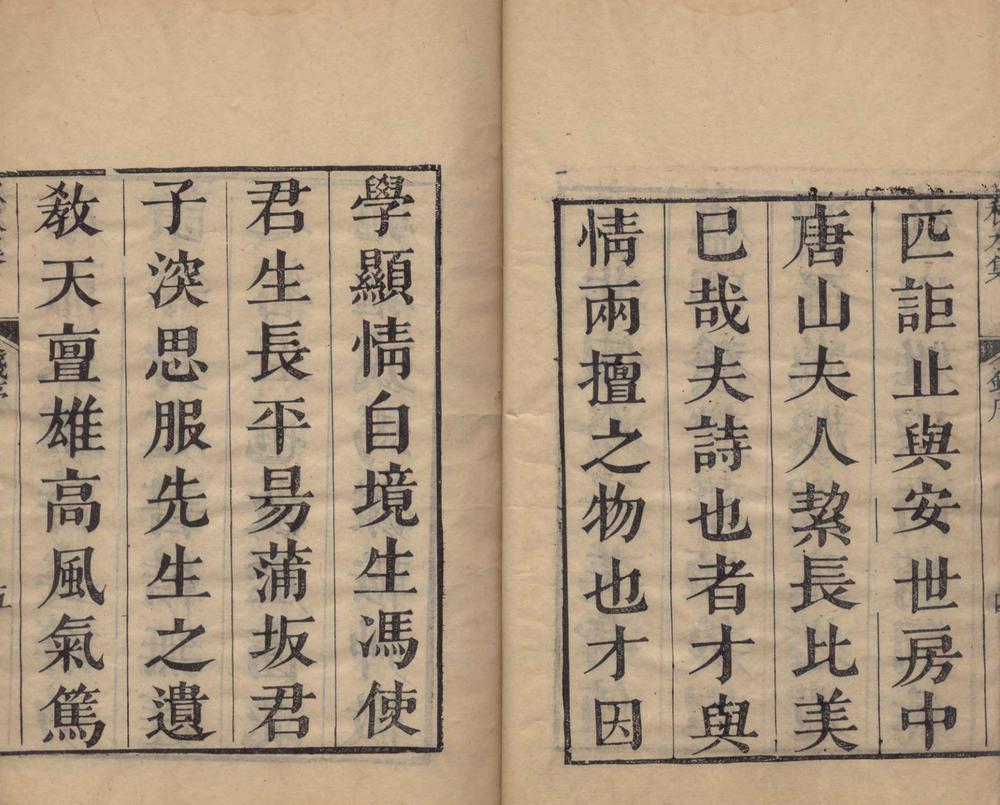 匹詎止與安世房中
唐山夫人絜長比美
已哉夫詩也者才與
情兩擅之物也才因
學顯情自境生馮使
君生長平昜蒲坂君
子湥思服先生之遺
敎天亶雄高風氣篤